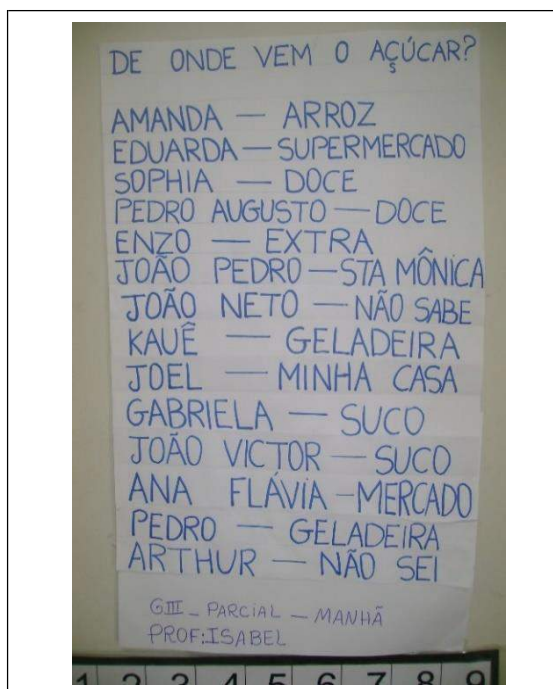 DE ONDE VEM O AÇÚCAR?
AMANDA — ARROZ
EDUARDA — SUPERMERCADO
SOPHIA — DOCE
PEDRO AUGUSTO — DOCE
ENZO — EXTRA
JOÃO PEDRO — STA MÔNICA
JOÃO NETO — NÃO SABE
KAUÊ — GELADEIRA
JOEL — MINHA CASA
GABRIELA — SUCO
JOÃO VICTOR — SUCO
ANA FLÁVIA — MERCADO
PEDRO — GELADEIRA
ARTHUR — NÃO SEI
GIII _ PARCIAL — MANHÃ
PROF:ISABEL
1 2 3 4 5 6 7 8 9